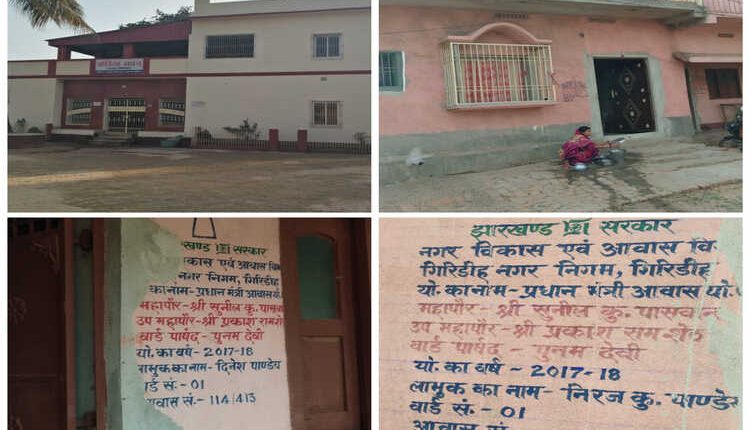 खण्ड सरकार
कास एवं आवास विभ
नगर निगम, गिरिडीह
का नाम- प्रधान मंत्री आवास यो.
महापौर-श्री सुनील कु. पासवा
उप महापौर-श्री प्रकाश राम
वार्ड पार्षद- पुनम देवी
यो. का वर्ष - 2017-18
ाभुक का नाम - दिनेश पाण्डेय
ार्ड सं.- 01
ावास सं.- 114/413
झारखण्ड सरकार
नगर विकास एवं आवास वि
गिरिडीह नगर निगम, गिरिडीह
यो. का नाम - प्रधान मंत्री आवास यो.
महापौर - श्री सुनील कु. पासवान
उप महापौर - श्री प्रकाश राम सेठ
वार्ड पार्षद - पुनम देवी
यो. का वर्ष - 2017-18
लाभुक का नाम - निरज कु. पाण्डे
वार्ड सं. - 01
आवास सं.